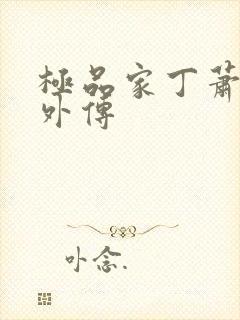 極品家丁蕭
外傳
卟念.